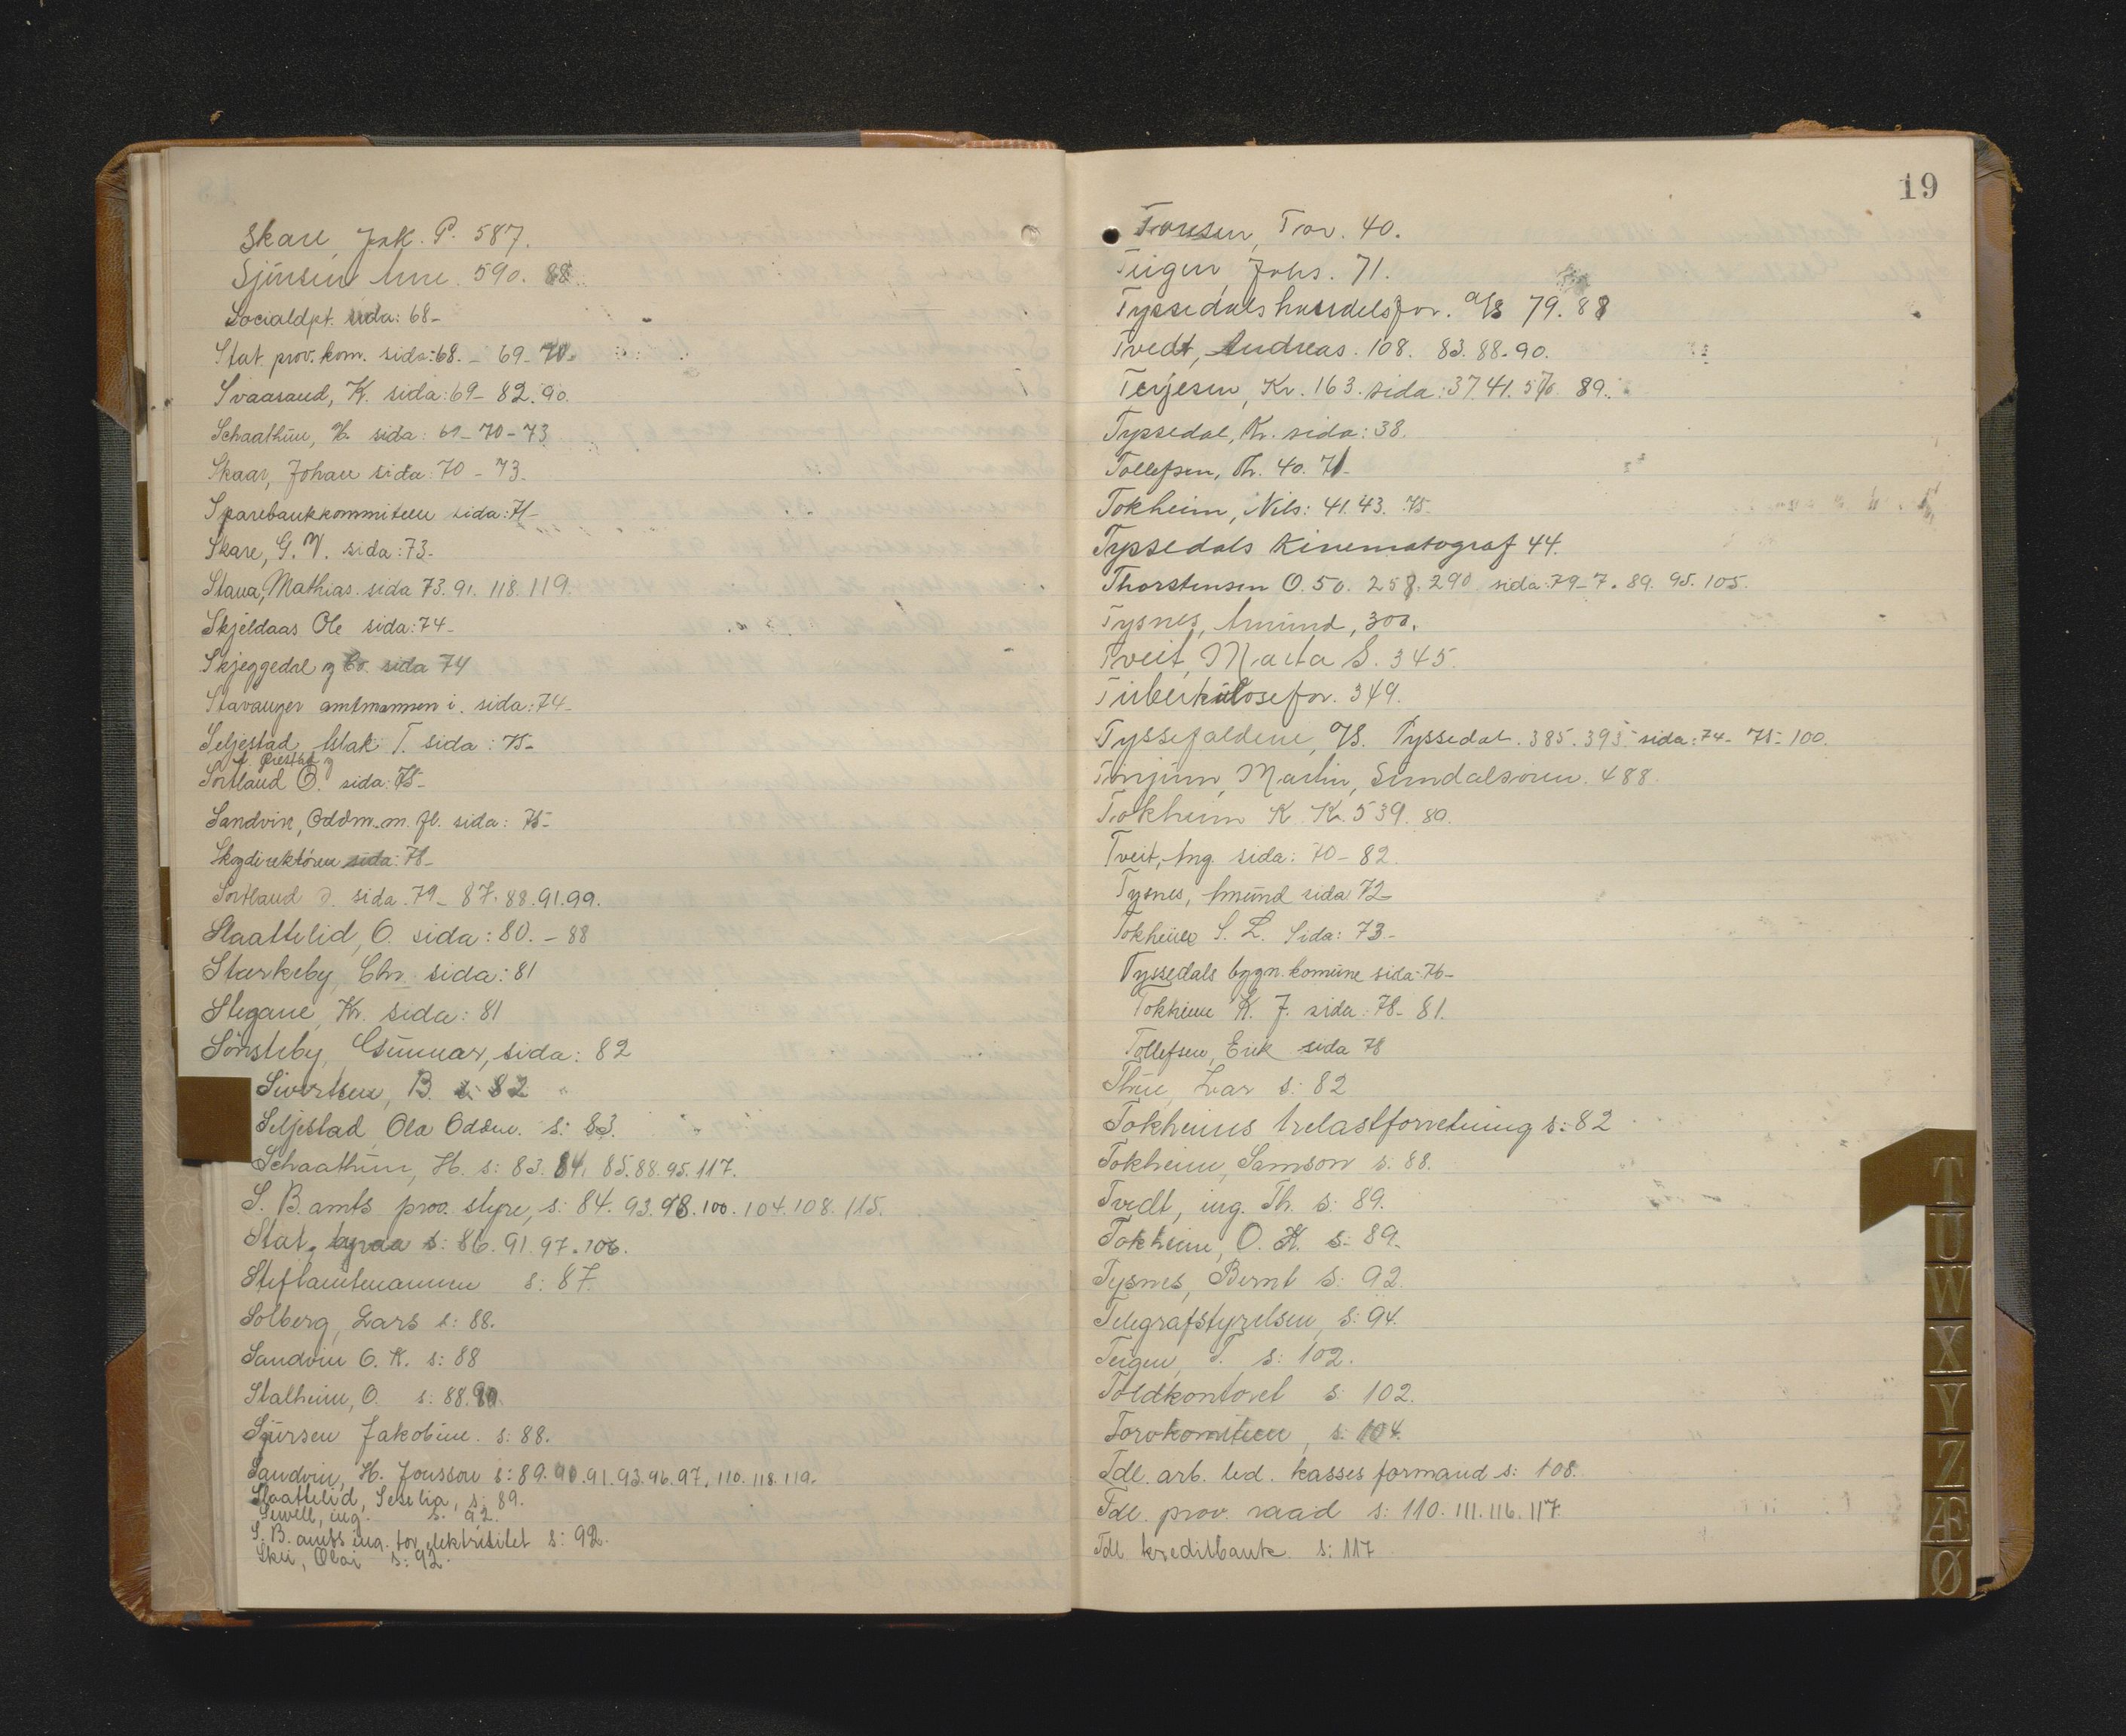 Skare, Jak. P. 587.
Sjursen Arne. 590. 88.
Socialdpt. sida: 68-
Stat. prov. kom. sida: 68. - 69- 70.
Svaasand, K. sida: 69- 82. 90.
Schaathun, H. sida: 69- 70- 73
Skaar, Johan sida: 70 - 73.
Sparebankkommiteen sida: 71-
Skare, G. W. sida: 73.
Stana, Mathias. sida 73. 91. 118. 119.
Skjeldaas Ole sida: 74-
Skjeggedal og Co. sida 74
Stavanger amtmannen i. sida: 74-
Seljestad, Aslak T. sida: 75-
Sørtland O. sida: 75-
Sandvin, Oddm. m. fl. sida: 75-
Skogdirektøren sida: 78-
Sortland O. sida. 79- 87. 88. 91. 99.
Slaattelid, O. sida: 80. - 88
Starkeby, Chr. sida: 81
Stegane, Kr. sida: 81
Sønsteby, Gunnar, sida: 82
Sivertsen, B. s: 82
Seljestad Ola Oddm. s: 83.
Schaathun, H. s: 83. 84. 85. 88. 95. 117.
S. B. amts prov. styre, s: 84. 93. 98. 100. 104. 108. 115.
Stat. byraa s: 86. 91. 97. 106.
Stiftamtmannen s: 87.
Solberg, Lars s: 88.
Sandvin O. K. s: 88
Stalheim, O. s: 88. 90.
Sjursen Jakobine. s: 88.
Sandvin, H. Jonsson s: 89. 90. 91. 93. 96. 97. 110. 118. 119.
Slaattelid, Seselia, s: 89.
Sewell, ing. s: 92.
S. B. amts ing. for elektrisitet s: 92.
Skei, Olai s: 92.
19
Tronsen, Tor. 40.
Teigen, Johs. 71.
Tyssedals handelsfor. a/s 79. 88
Tvedt, Andreas. 108. 83. 88. 90.
Terjesen, Kr. 163. sida: 37. 41. 89.
Tyssedal, Kr. sida: 38.
Tollefsen, Th. 40. 71-
Tokheim, Nils: 41. 43. 75-
Tyssedals Kinematograf 44.
Thorstensen O. 50. 258. 290 sida: 79- 7. 89. 95. 105.
Tysnes, Amund, 300.
Tveit, Marta S. 345.
Tuberkulosefor. 349.
Tyssefaldene, A/S. Tyssedal. 385. 393. sida: 74- 75- 100.
Tønjum, Martin, Sundalsøren. 488.
Tokheim K. K. 539. 80.
Tveit, Ang. sida: 70- 82.
Tysnes, Amund sida 72-
Tokheim S. L. Sida: 73-
Tyssedals bygn. komune sida: 76-
Tokheim K. J. sida: 78- 81.
Tollefsen, Erik sida 78
Thue, Ivar s: 82
Tokheims trelastforretning s: 82
Tokheim, Samson s: 88.
Tvedt, ing. Th. s: 89.
Tokheim, O. K. s- 89-
Tysnes, Bernt s: 92.
Telegrafstyrelsen, s: 94.
Teigen, T. s: 102.
Toldkontoret s: 102.
Torvkomiteen, s: 104.
Tdl. arb. led. kasses formand s: 108.
Tdl. prov. raad s: 110. 111. 116. 117.
Tdl kreditbank s: 117
T
U
W
X
Y
Z
Æ
Ø